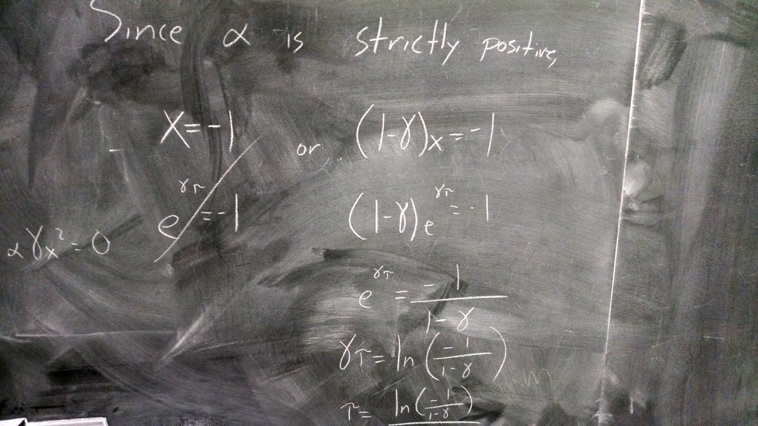 Since α is strictly positive,
x = -1 or (1-γ)x = -1
e^{γτ} = -1 (1-γ)e^{γτ} = -1
αγx² = 0
e^{γτ} = -1/(1-γ)
γτ = ln(-1/(1-γ))
τ = ln(-1/(1-γ))